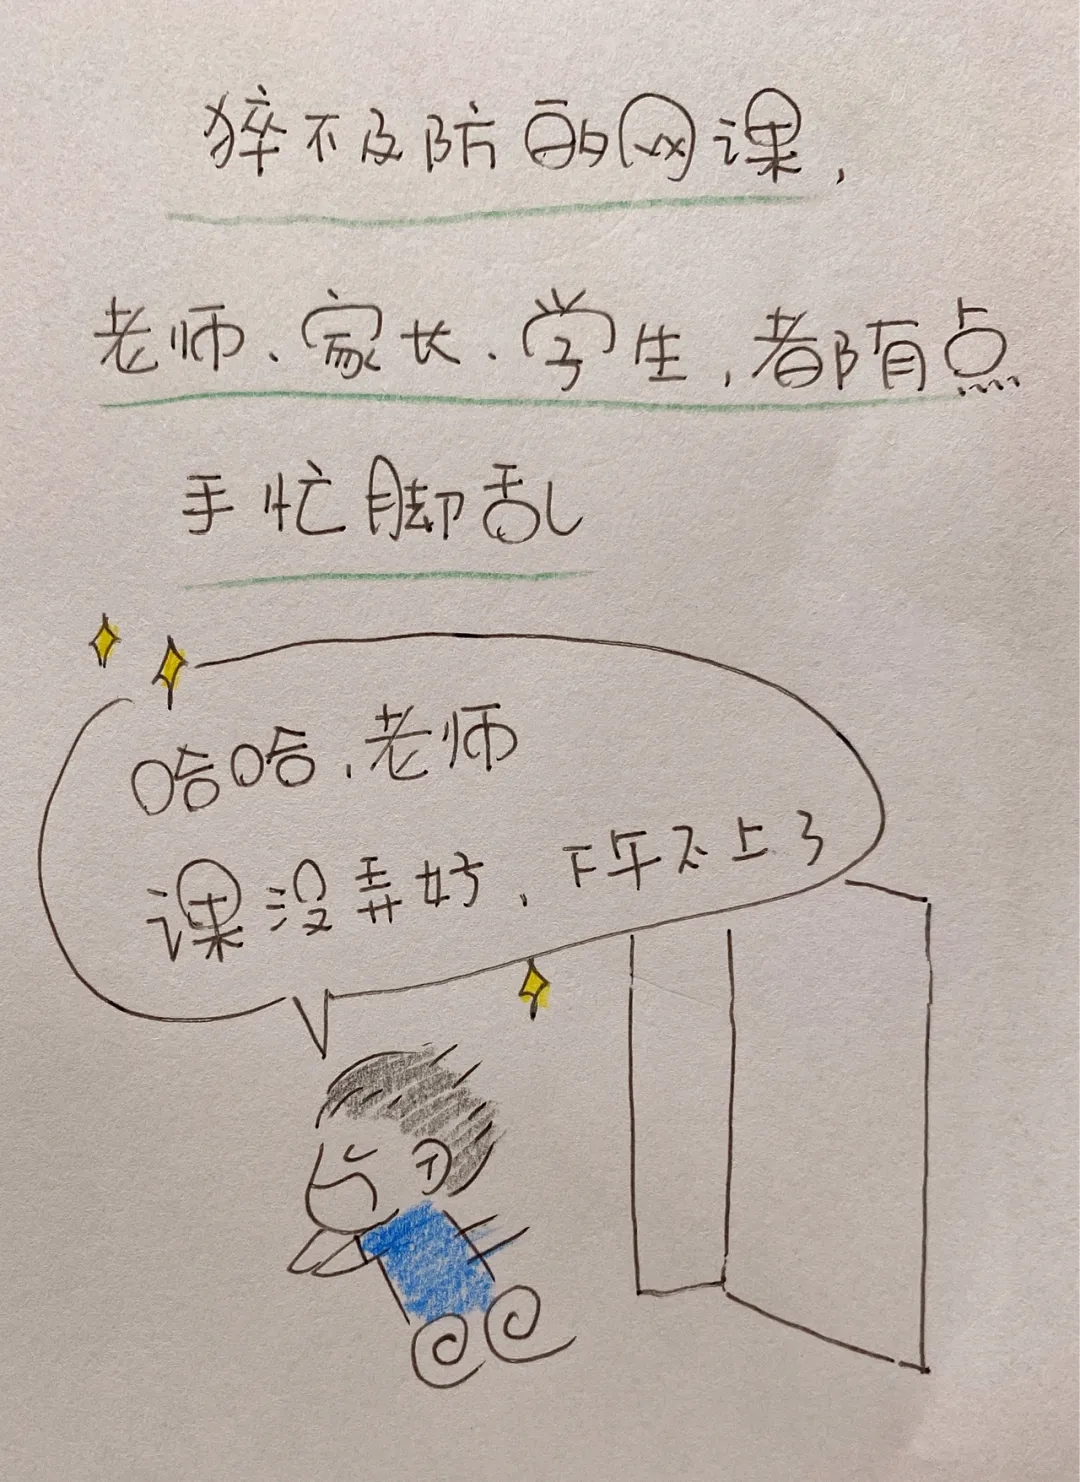 猝不及防的网课，
老师、家长、学生，都有点
手忙脚乱
哈哈，老师
课没弄好，下午不上了